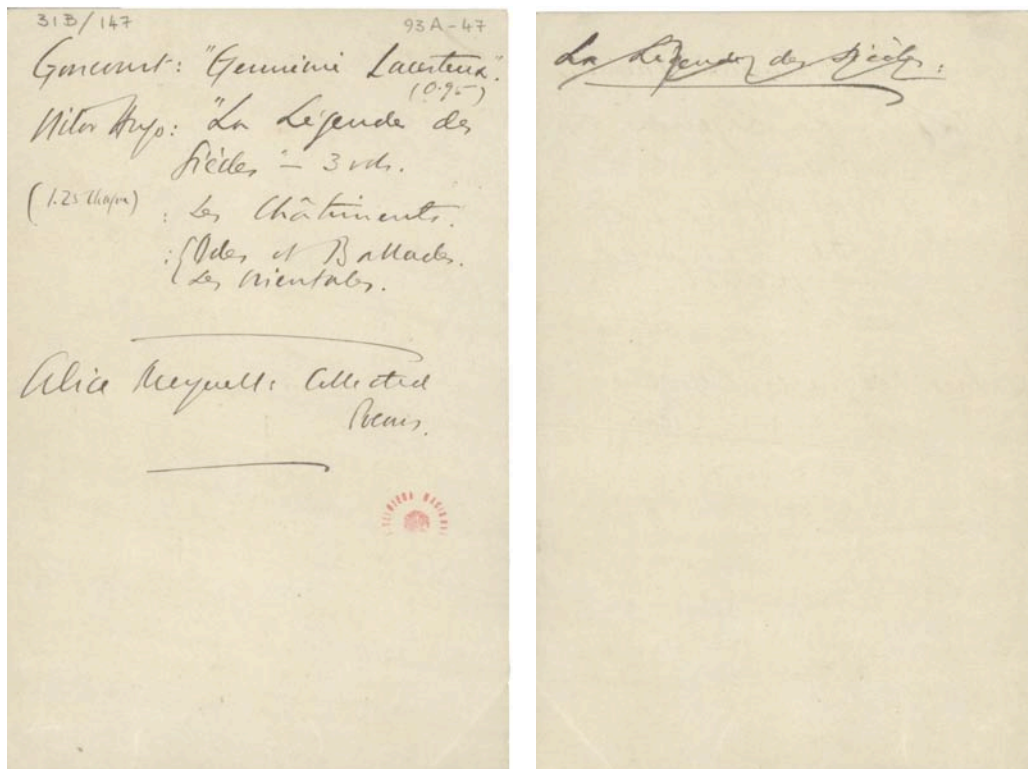 31B/147
93A-47
Goncourt: "Germinie Lacerteux".
(0.95)
Victor Hugo: "La Légende des
Siècles" – 3 vols.
(1.25 chaque) : Les Châtiments.
: { Odes et Ballades.
Les Orientales.
Alice Meynell: Collected
Poems.
BIBLIOTECA NACIONAL
La Légende des Siècles: